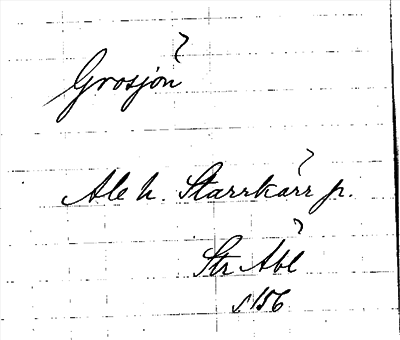 Grosjön
Ale h. Starrkärr p.
Str Åbl
s 156